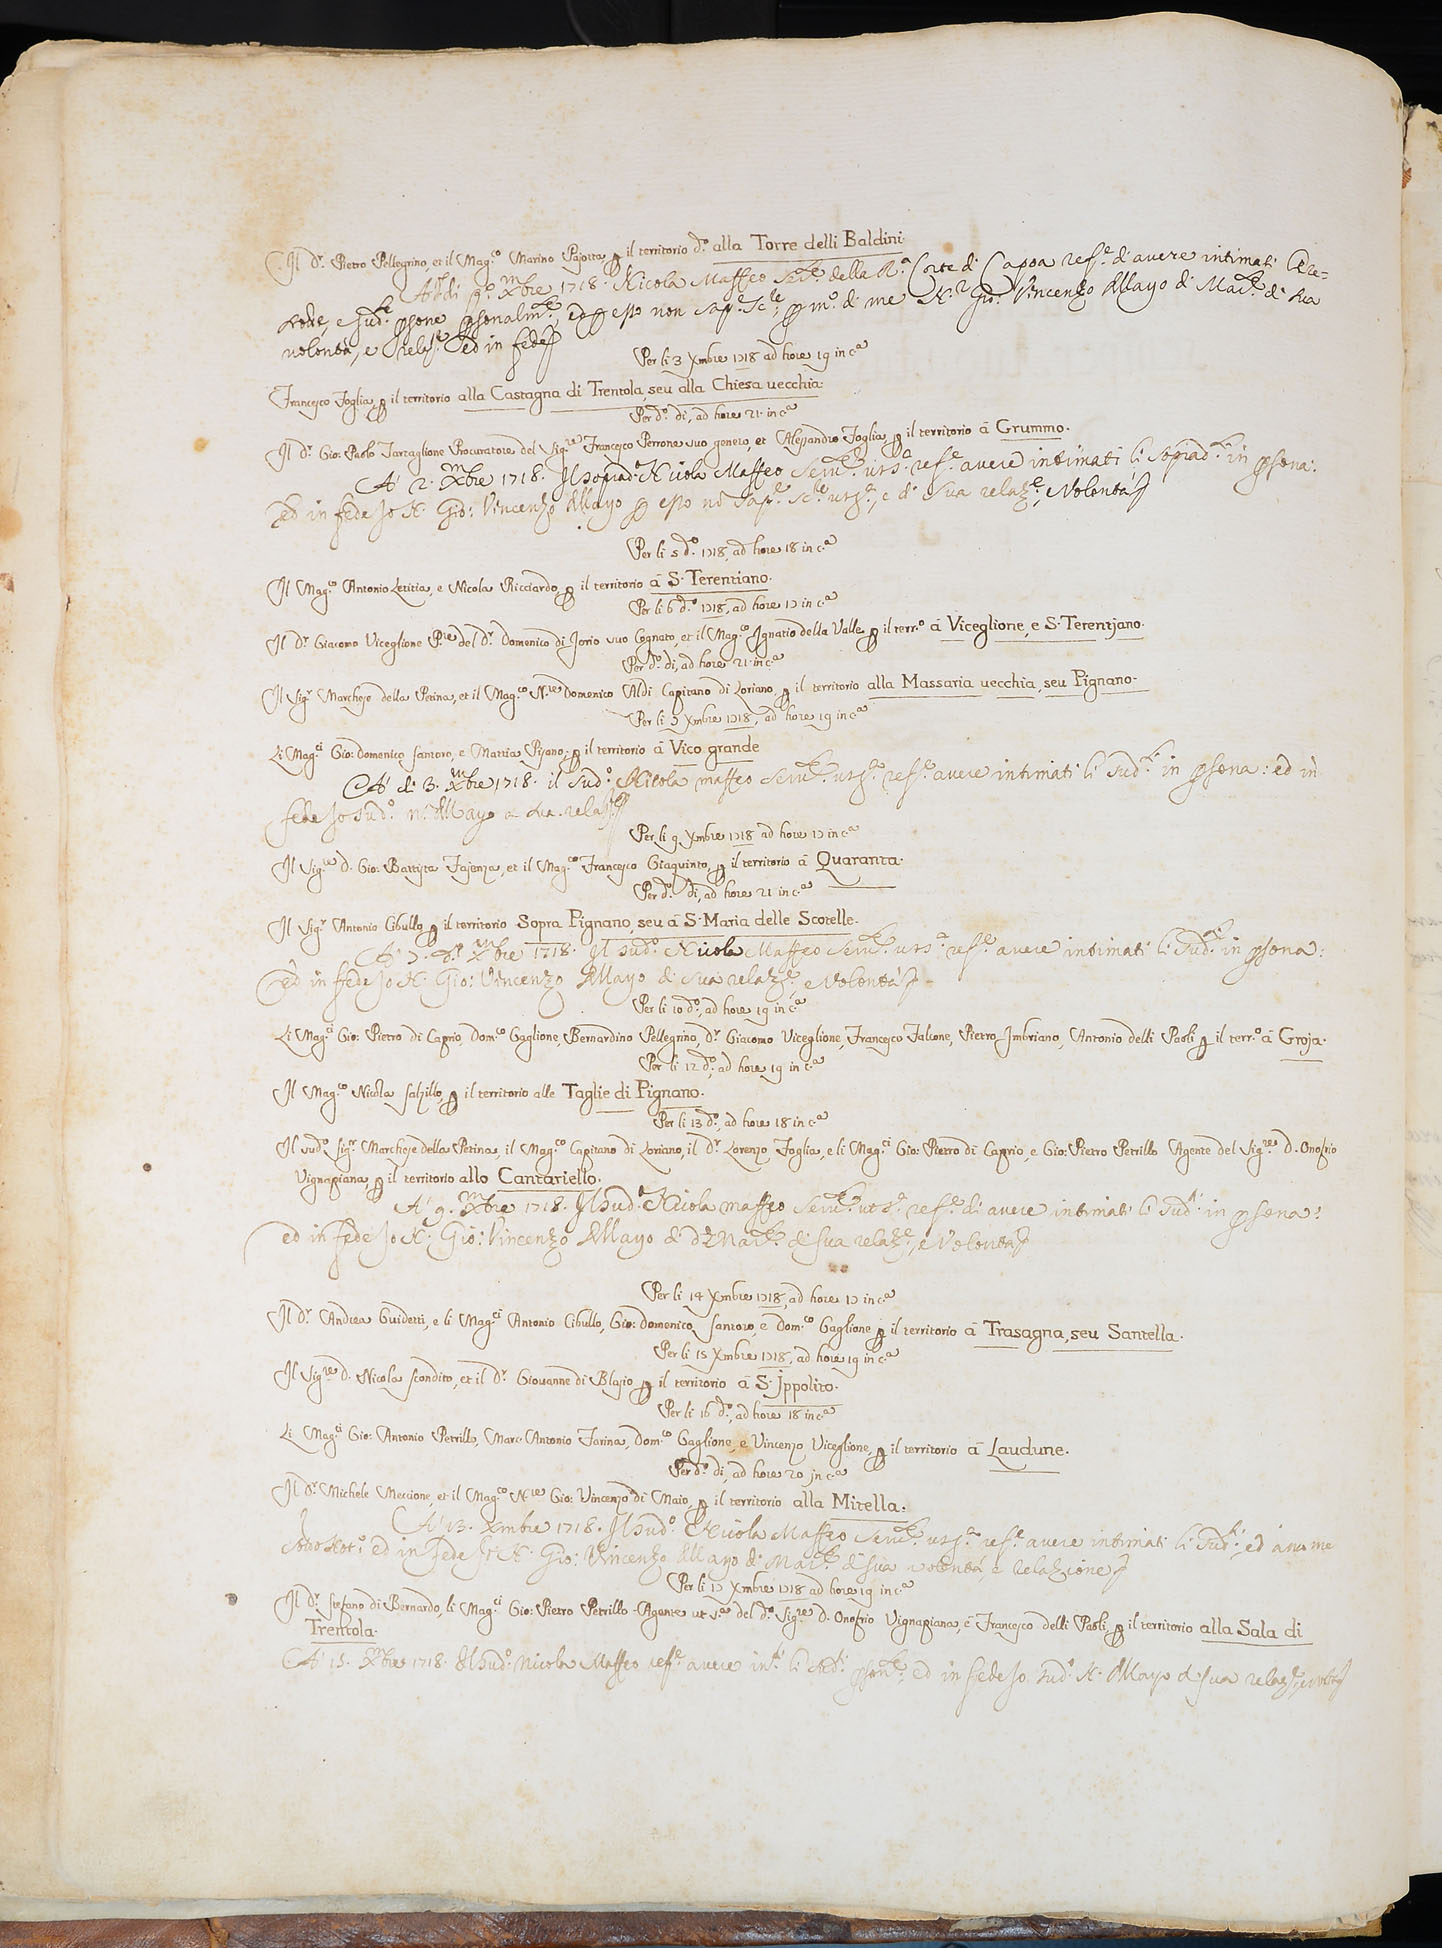 Il D.r Pietro Pellegrino, et il Mag.co Marino Pajotta, p il territorio d.o alla Torre delli Baldini.
A di p.o Xmbre 1718. Nicola Maffeo Ser.te della R.a Corte di Capoa ref.e di avere intimati l'Ere-
, e sud.e psone psonalm.te, ed p esso non sap.e sc.re, p m.o di me N.r Gio: Vincenzo Mayo di Mac.ta di sua
volontà, e relaz.e ed in fede
Per li 3 Xmbre 1718 ad hore 19 in c.a
Francesco Foglia, p il territorio alla Castagna di Trentola, seu alla Chiesa vecchia.
Per d.o di, ad hore 21. in c.a
Il D.r Gio: Paolo Tartaglione Procuratore del Sig.re Francesco Perrone suo genero, et Alesandro Foglia, p il territorio à Grummo.
A' 2. Xmbre 1718. Il soprad.o Nicola Maffeo Serv.te ut s.a ref.e avere intimati li soprad.ti in psona:
ed in fede Io N. Gio: Vincenzo Mayo p esso nō sap.e sc.re ut s.a, e di sua relaz.e, e Volontà
Per li 5 d.o 1718, ad hore 18 in c.a
Il Mag.co Antonio Letitia, e Nicola Ricciardo, p il territorio à S. Terentiano.
Per li 6 d.o 1718, ad hore 17 in c.a
Il D.r Giacomo Viceglione P.re del D.r Domenico di Iorio suo Cognato, et il Mag.co Ignatio della Valle p il terr.o à Viceglione, e S. Terentjano.
Per d.o di, ad hore 21. in c.a
Il Sig.r Marchese della Petina, et il Mag.co N.re Domenico Aldi Capitano di Loriano, p il territorio alla Massaria vecchia, seu Pignano.
Per li 7 Xmbre 1718, ad hore 19 in c.a
Li Mag.ci Gio: Domenico Santoro, e Mattia Pisano, p il territorio à Vico grande
A' di 3. Xmbre 1718. il sud.o Nicola Maffeo Serv.te ut s.a ref.e avere intimati li sud.ti in psona: ed in
fede Io sud.o N. Mayo a sua relaz.e
Per li 9 Xmbre 1718 ad hore 17 in c.a
Il Sig.re D. Gio: Battista Fajenza, et il Mag.co Francesco Giaquinto, p il territorio à Quaranta.
Per d.o di, ad hore 21 in c.a
Il Sig.r Antonio Cibullo, p il territorio Sopra Pignano, seu à S. Maria delle Scotelle.
A' 7. d.o Xmbre 1718. Il sud.o Nicola Maffeo Serv.te ut s.a ref.e avere intimati li sud.ti in psona:
ed in fede Io N. Gio: Vincenzo Mayo di sua relaz.e, e Volontà
Per li 10 d.o, ad hore 19 in c.a
Li Mag.ci Gio: Pietro di Caprio, Dom.co Gaglione, Bernardino Pellegrino, D.r Giacomo Viceglione, Francesco Falcone, Pietro Imbriano, Antonio delli Paoli p il terr.o à Groja.
Per li 12 d.o, ad hore 19 in c.a
Il Mag.co Nicola Salzillo, p il territorio alle Taglie di Pignano.
Per li 13 d.o, ad hore 18 in c.a
Il sud.o Sig.r Marchese della Petina, il Mag.co Capitano di Loriano, il D.r Lorenzo Foglia, e li Mag.ci Gio: Pietro di Caprio, e Gio: Pietro Petrillo Agente del Sig.re D. Onofrio
Vignapiana, p il territorio allo Cantariello.
A' 9. Xmbre 1718. Il sud.o Nicola Maffeo Serv.te ut s.a ref.e di avere intimati li sud.ti in psona:
ed in fede Io N. Gio: Vincenzo Mayo di d.a Mac.ta di sua relaz.e, e Volontà
Per li 14 Xmbre 1718, ad hore 17 in c.a
Il D.r Andrea Guidetti, e li Mag.ci Antonio Cibullo, Gio: Domenico Santoro, e Dom.co Gaglione p il territorio à Trasagna, seu Santella.
Per li 15 Xmbre 1718, ad hore 19 in c.a
Il Sig.re D. Nicola Scondito, et il D.r Giovanne di Blasio p il territorio à S. Ippolito.
Per li 16 d.o, ad hore 18 in c.a
Li Mag.ci Gio: Antonio Petrillo, Marc'Antonio Farina, Dom.co Gaglione, e Vincenzo Viceglione, p il territorio à Laudune.
Per d.o di, ad hore 20 in c.a
Il D.r Michele Meccione, et il Mag.co N.re Gio: Vincenzo di Maio, p il territorio alla Mitella.
A' 13. Xmbre 1718. Il sud.o Nicola Maffeo Serv.te ut s.a ref.e avere intimati li sud.ti, ed à me
Not.o ed in fede Io N. Gio: Vincenzo Mayo di Mac.ta di sua volontà, e relazione
Per li 17 Xmbre 1718 ad hore 19 in c.a
Il D.r Stefano di Bernardo, li Mag.ci Gio: Pietro Petrillo Agente ut s.a del d.o Sig.re D. Onofrio Vignapiana, e Francesco delli Paoli, p il territorio alla Sala di
Trentola.
A' 15. Xmbre 1718. Il sud.o Nicola Maffeo ref.e avere int.ti li sud.ti psonlm.te, ed in fede Io sud.o N. Mayo di sua relaz.e, e volontà